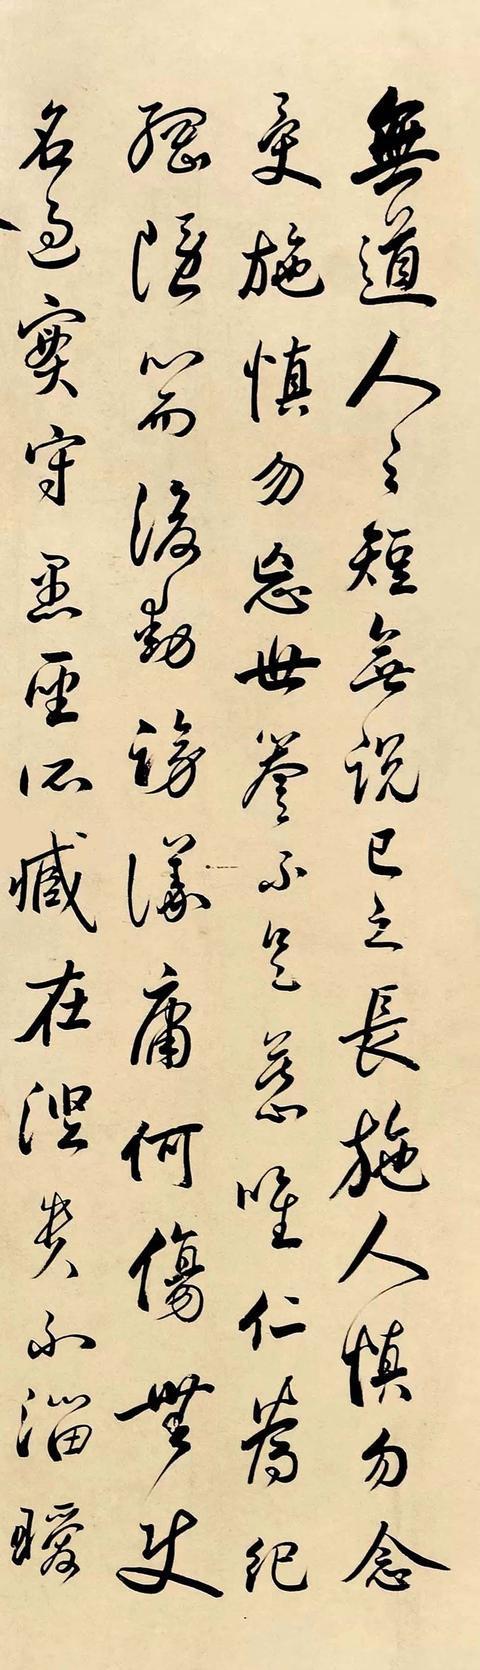 無道人之短無説己之長施人慎勿念
受施慎勿忘世譽不足慕唯仁爲紀
綱隱心而後動謗議庸何傷無使
名過實守愚聖所臧在涅貴不淄曖